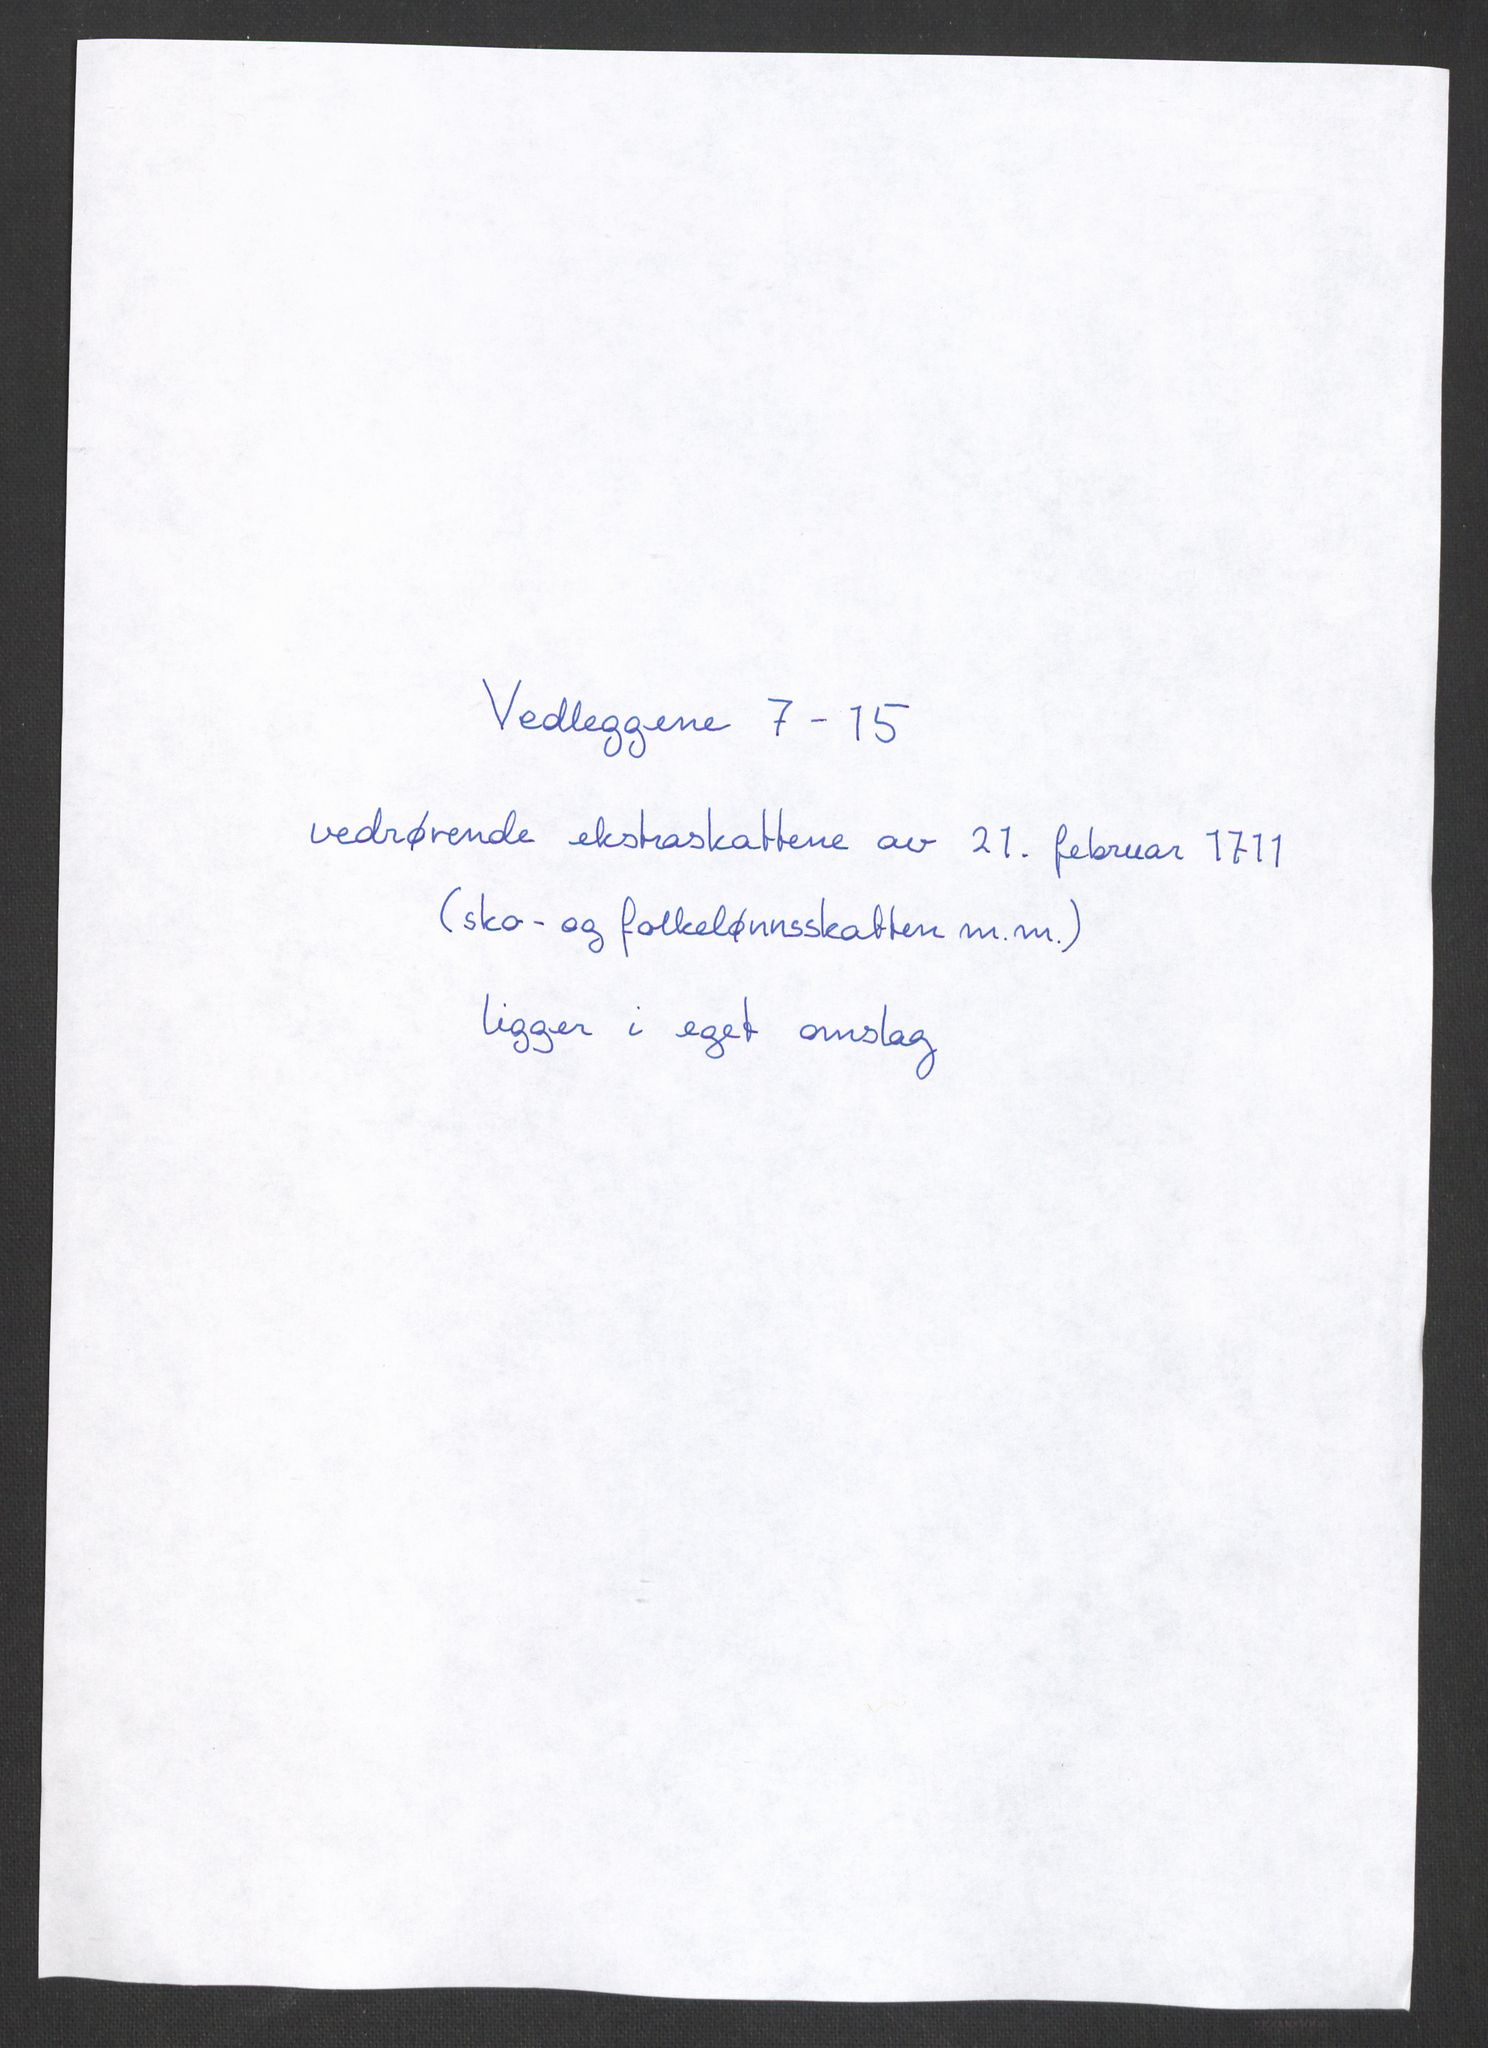 Vedleggene 7 - 15
vedrørende ekstraskattene av 21. februar 1711
(sko- og folkelønnsskatten m.m.)
ligger i eget omslag